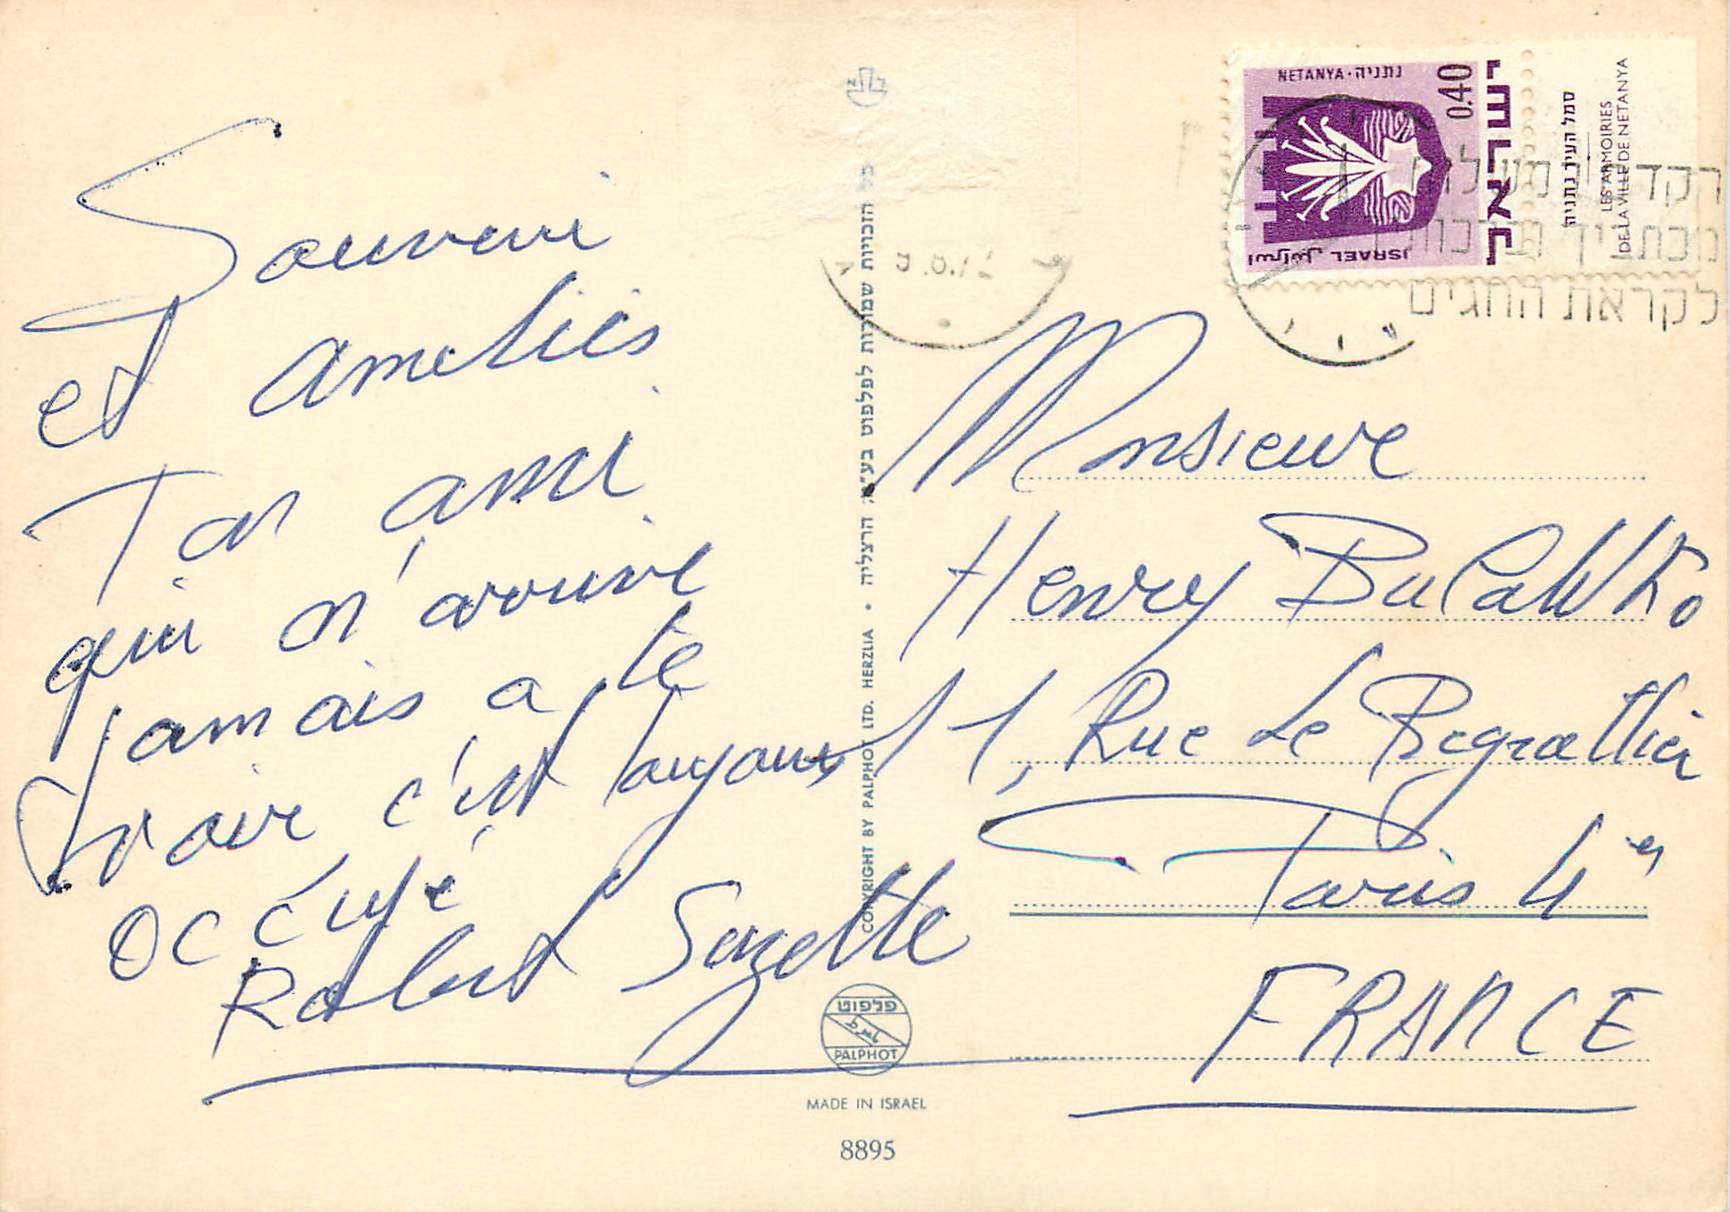 Souvenir
et amitiés
Ton ami
qui n'arrive
jamais a te
voir c'est toujours
occupé
Robert
Monsieur
Henry Bulawko
11, Rue Le Regrattier
Paris 4e
FRANCE
נתניה · NETANYA
0.40
ישראל
ISRAEL اسرائيل
סמל העיר נתניה
LES ARMOIRIES
DE LA VILLE DE NETANYA
לקראת החגים
כל הזכויות שמורות לפלפוט בע"מ הרצליה • COPYRIGHT BY PALPHOT LTD. HERZLIA
פלפוט
PALPHOT
MADE IN ISRAEL
8895